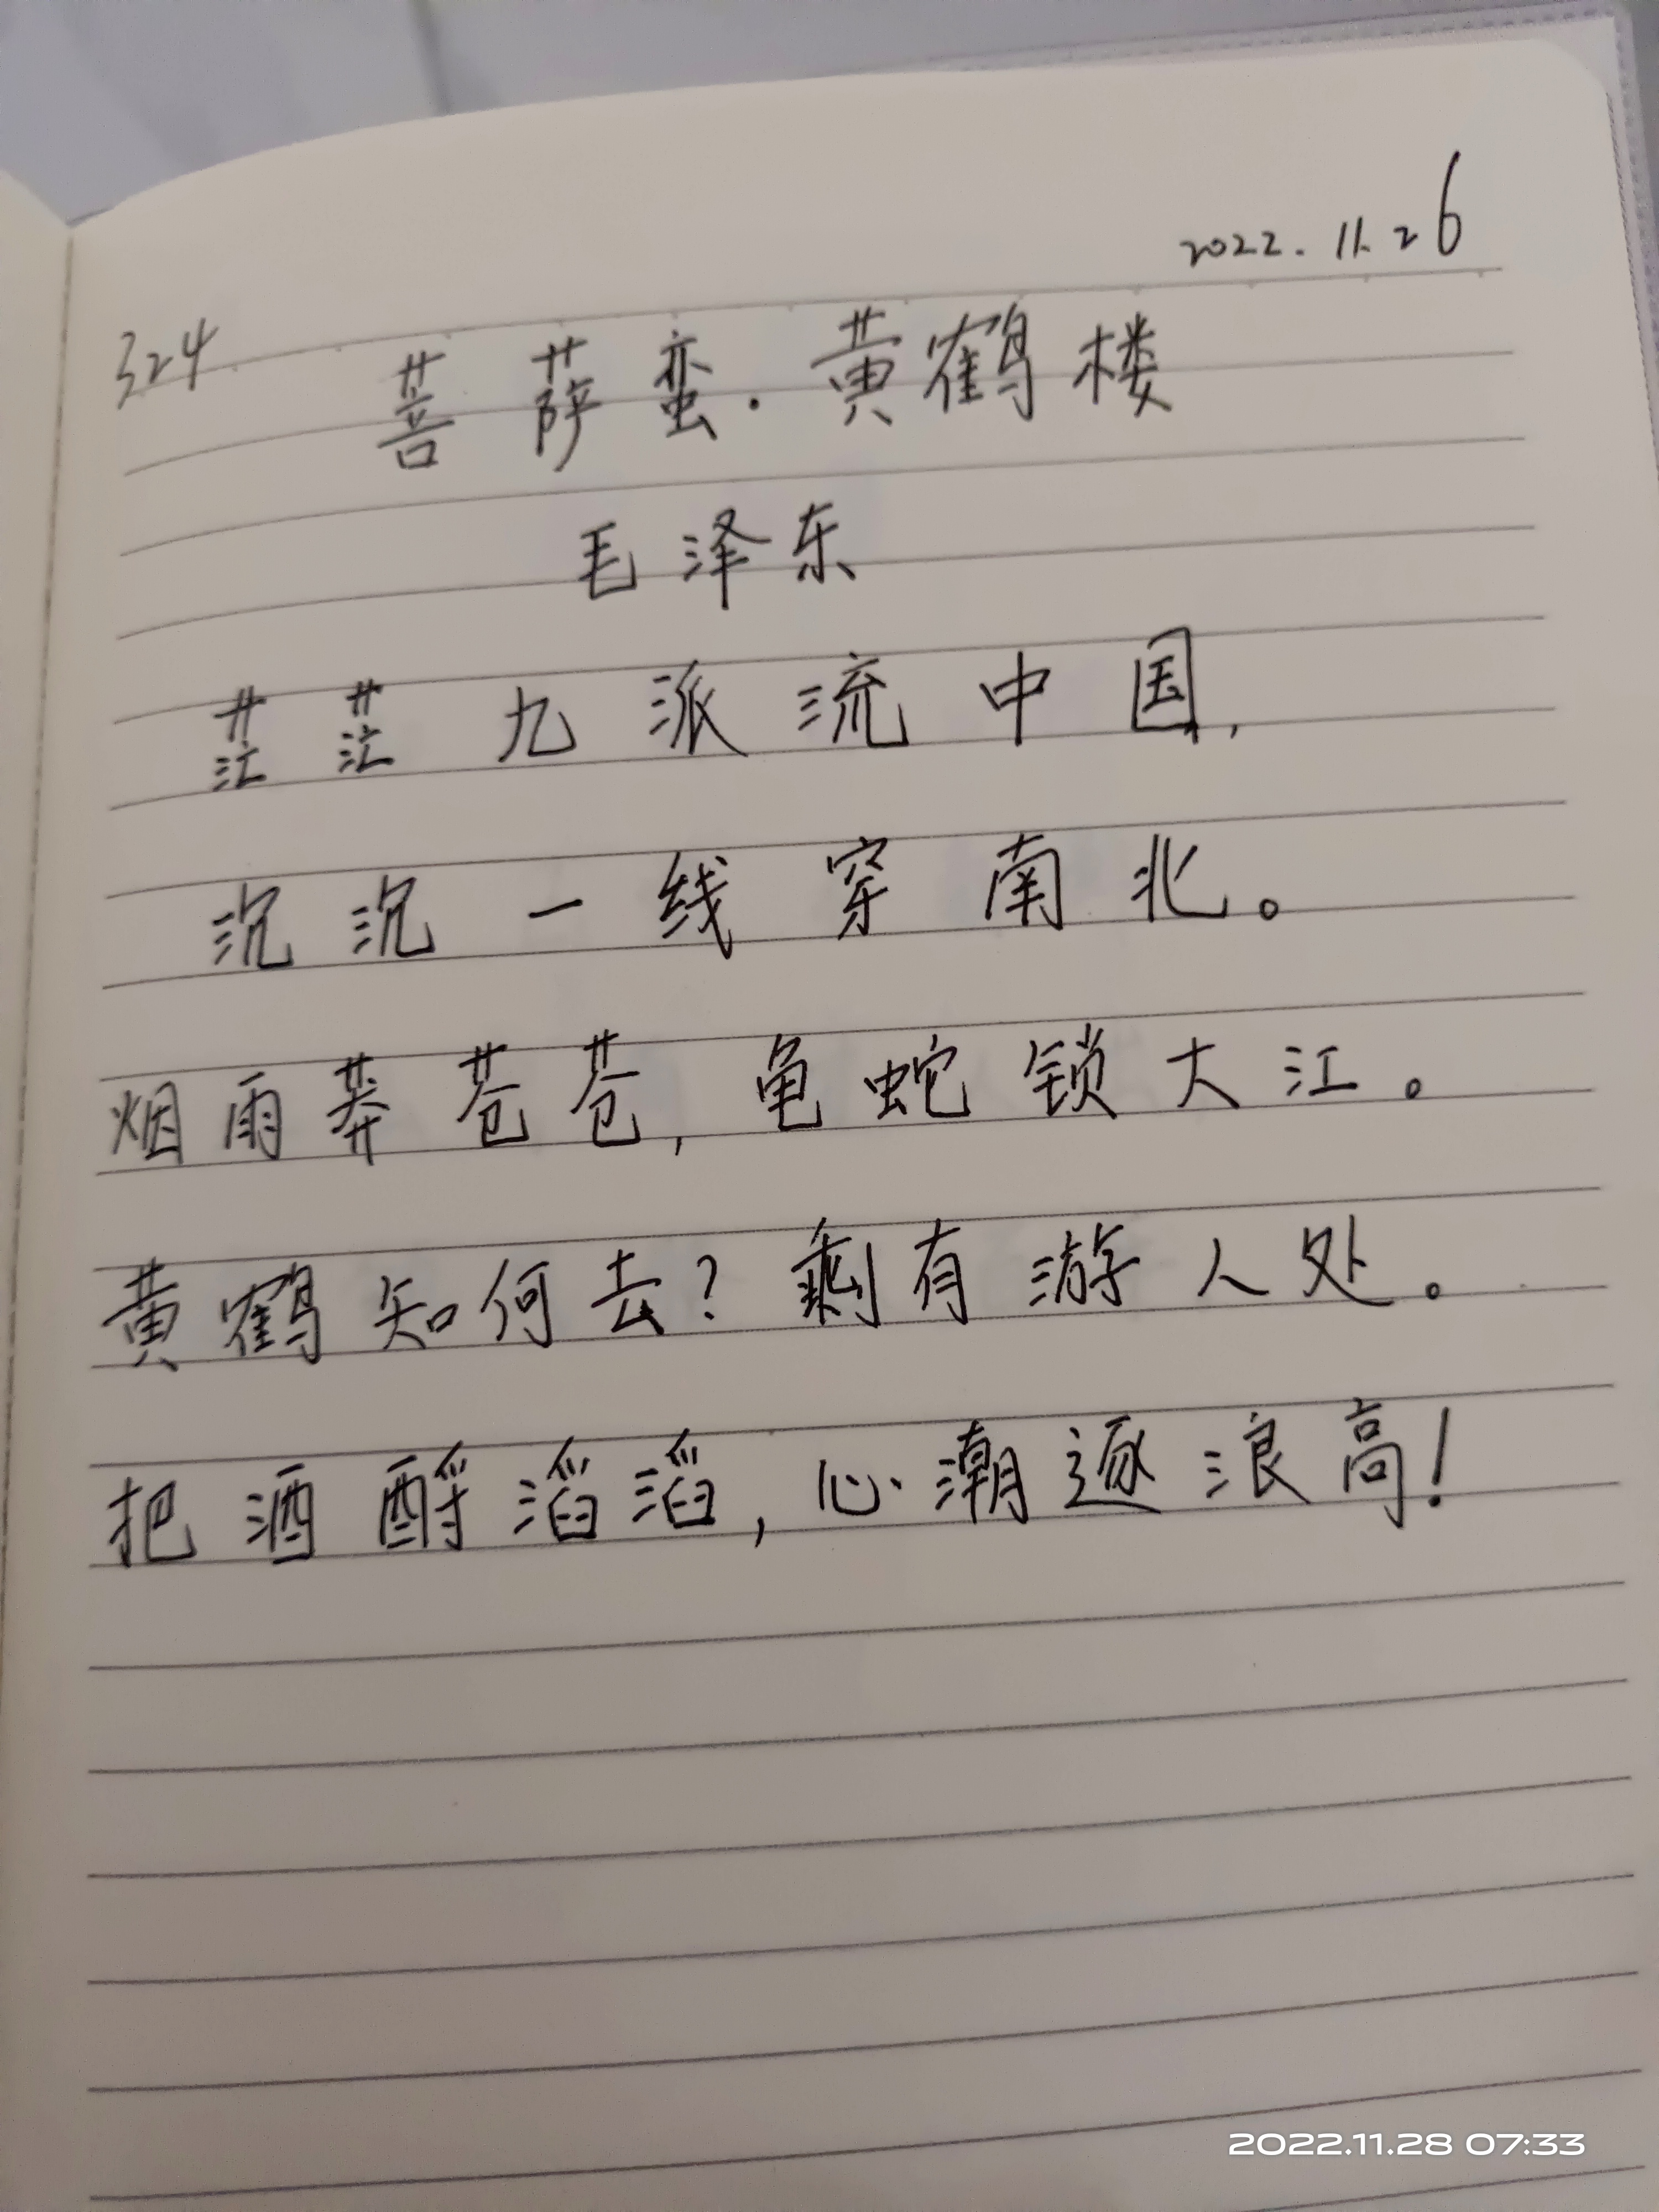 2022.11.26
324
菩萨蛮·黄鹤楼
毛泽东
茫茫九派流中国,
沉沉一线穿南北。
烟雨莽苍苍,龟蛇锁大江。
黄鹤知何去?剩有游人处。
把酒酹滔滔,心潮逐浪高!
2022.11.28 07:33